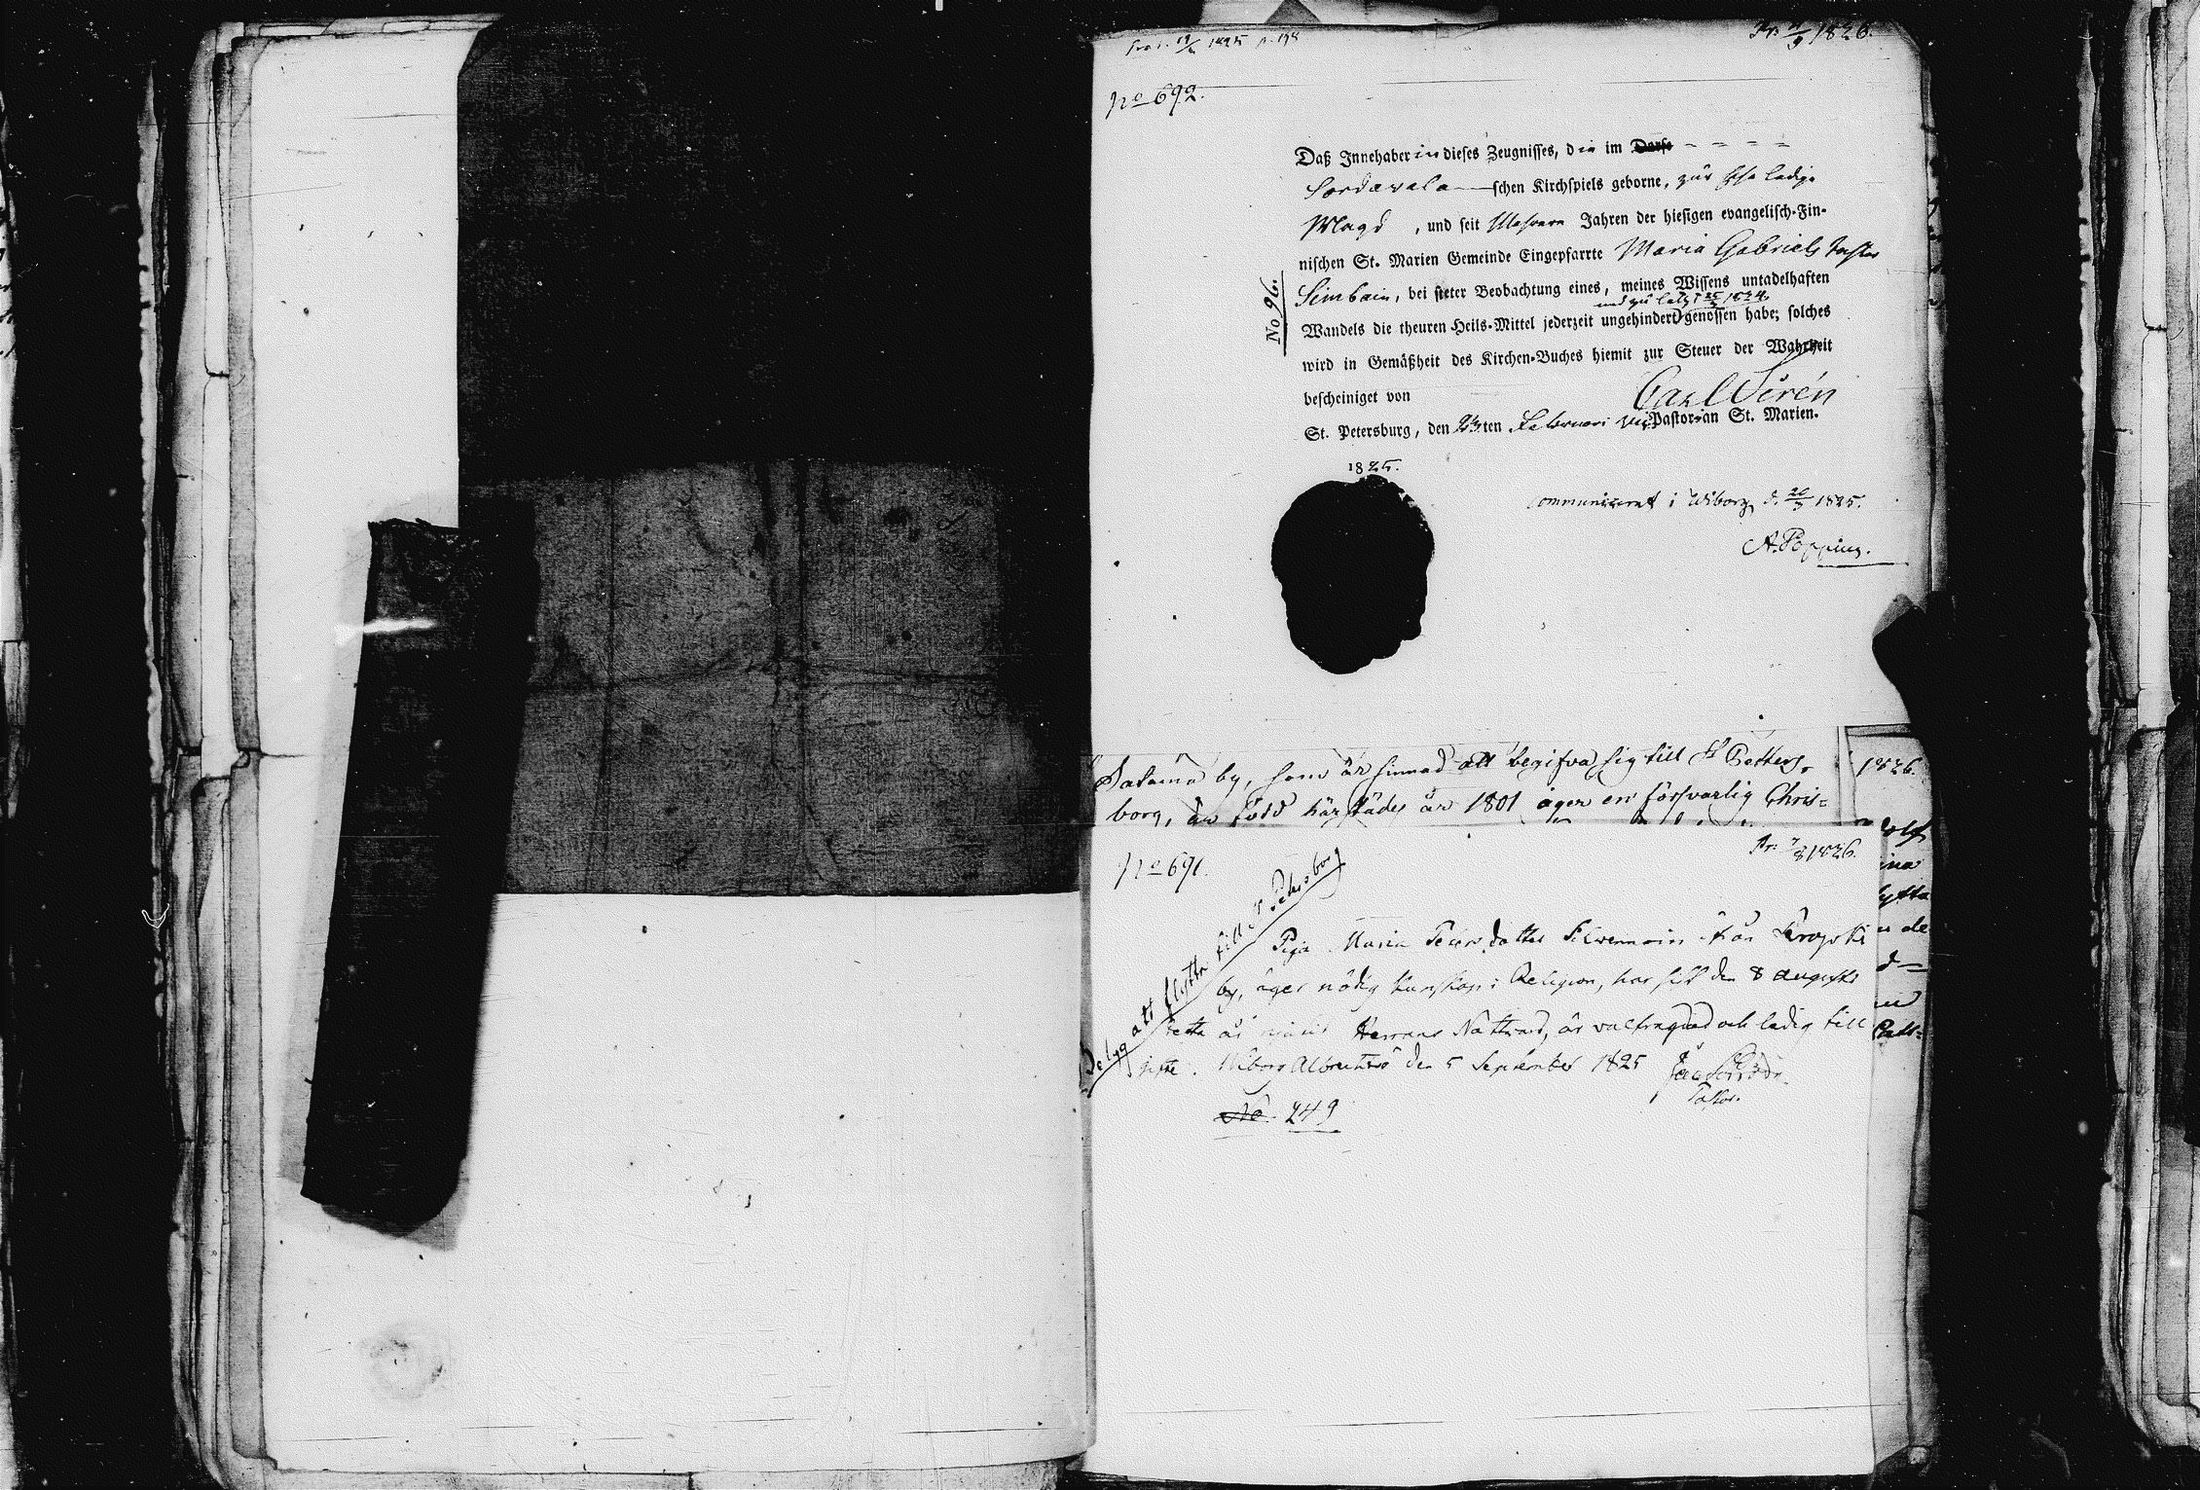 Pr. 11/9 1826.
No 692.
Daß Innehaberin dieses Zeugnisses, die im Dorfe - - - -
Sordavala schen Kirchspiels geborne, zur Ehe ledige
Magd, und seit Mehrern Jahren der hiesigen evangelisch-Fin-
nischen St. Marien Gemeinde Eingepfarrte Maria Gabriels tochter
Simbain, bei steter Beobachtung eines, meines Wissens untadelhaften
und zu letzt 1824
Wandels die theuren Heils-Mittel jederzeit ungehindert genossen habe; solches
wird in Gemäßheit des Kirchen-Buches hiemit zur Steuer der Wahrheit
bescheiniget von Carl Sirén
St. Petersburg, den 23ten Februari Pastor an St. Marien.
1825.
No 96.
Communicerat i Wiborg d. 20/3 1825.
A. Poppius.
by, som är sinnad att begifva sig till St Petters-
borg, är född härstädes år 1801 äger en försvarlig Chris=
1826.
No 691.
Pr: 7/8 1826.
Betyg att flytta till St Petersborg
Piga Maria Petersdotter från
by, äger nödig kunskap i Religion, har sist den 8 augusti
detta år njutit Herrans Nattvard, är välfrägdad och ledig till
gifte. Wiborg den 5 September 1825
Pastor.
No. 249